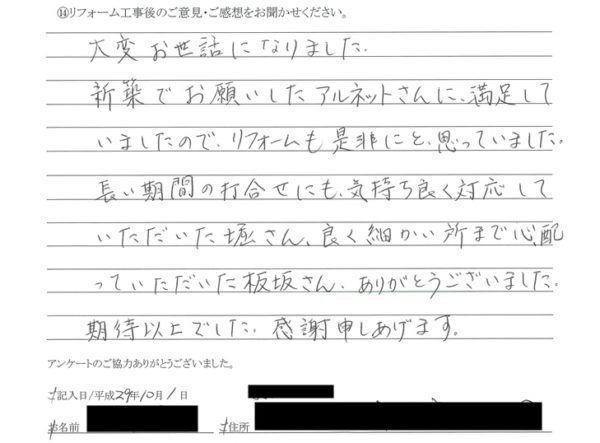 ⑭リフォーム工事後のご意見・ご感想をお聞かせください。
大変お世話になりました。
新築でお願いしたアルネットさんに、満足して
いましたので、リフォームも是非にと、思っていました。
長い期間の打合せにも、気持ち良く対応して
いただいた堀さん、良く細かい所まで心配
っていただいた板坂さん、ありがとうございました。
期待以上でした。感謝申しあげます。
アンケートのご協力ありがとうございました。
ご記入日/平成29年10月1日
お名前 ご住所